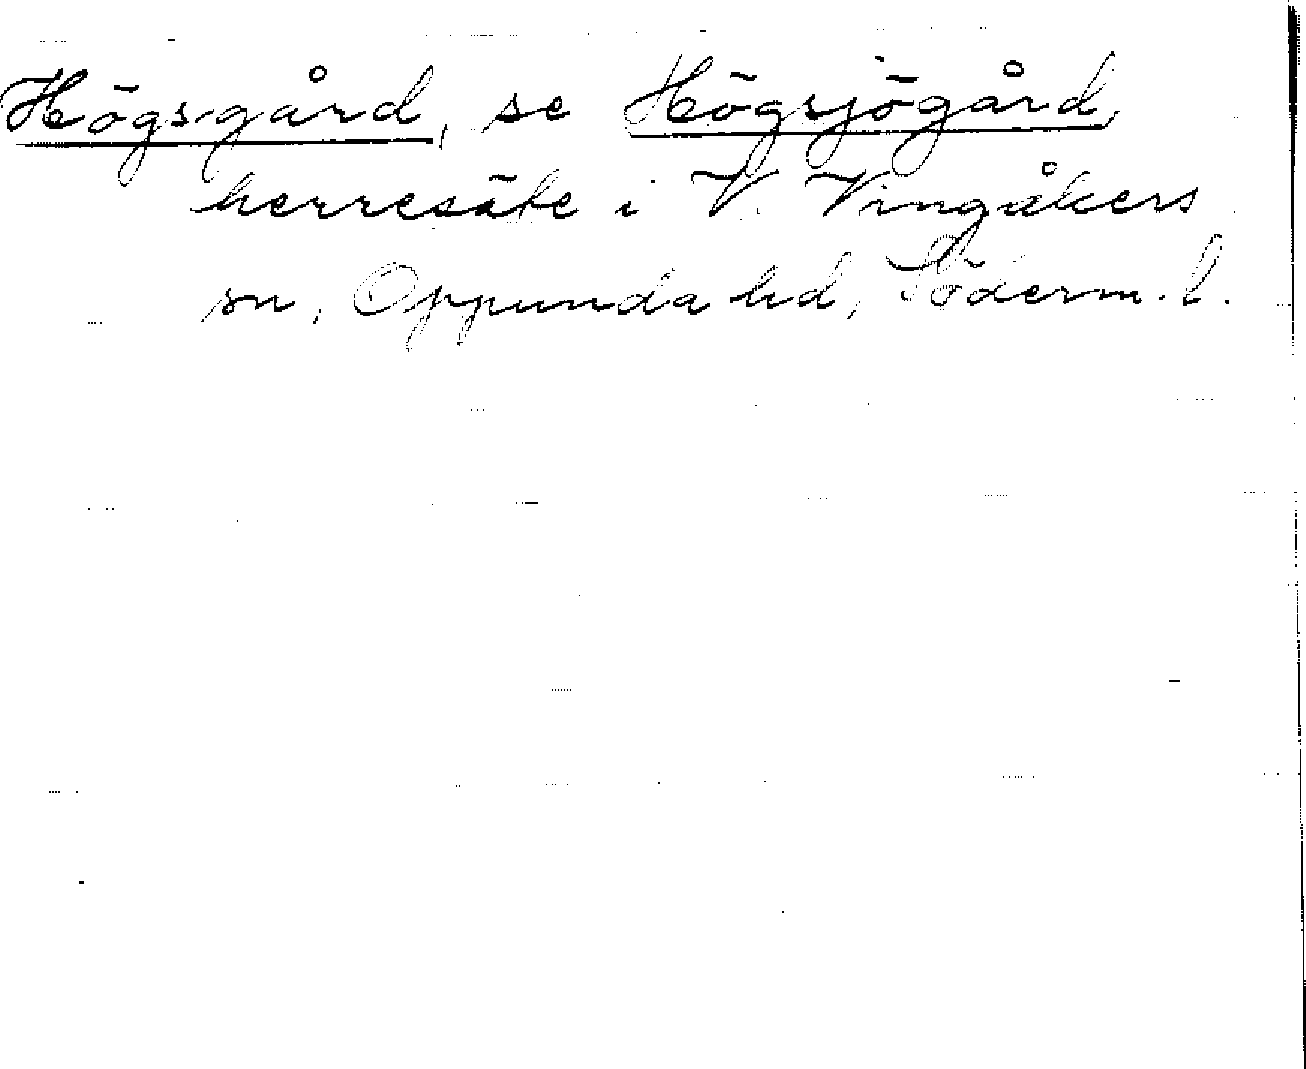 Högsgård, se Högsjögård,
herresäte i V. Vingåkers
sn, Oppunda hd, Söderm. l.